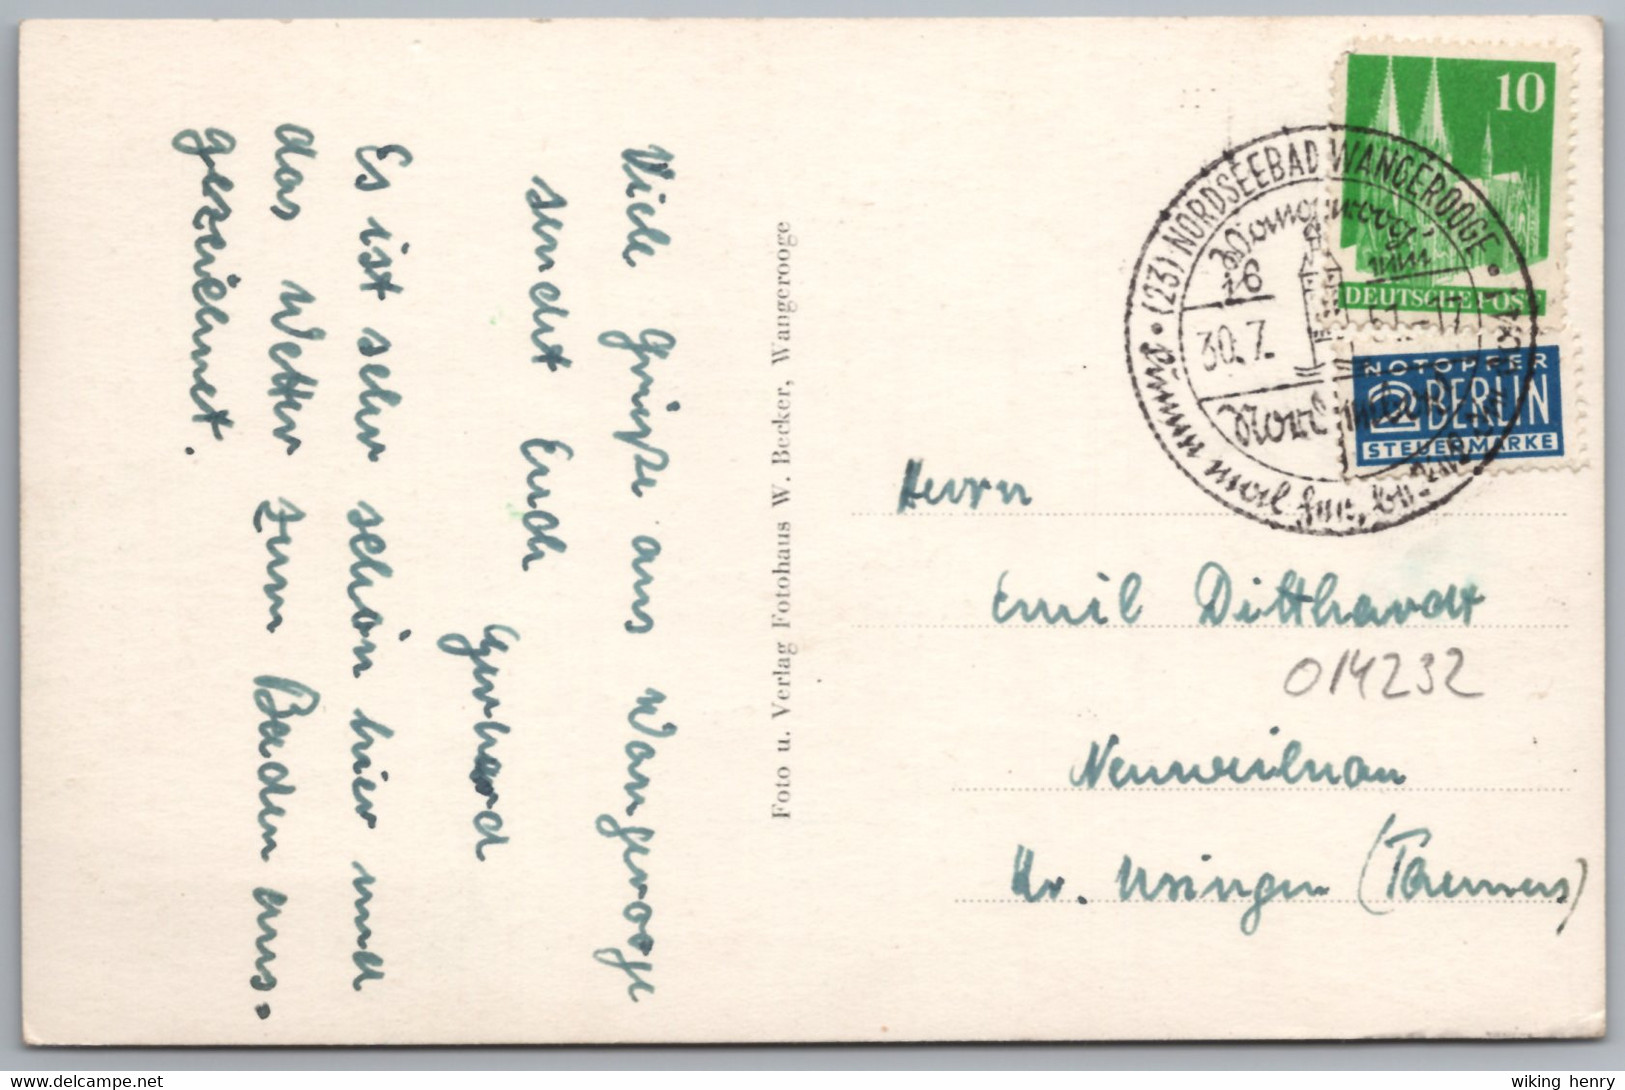 Viele Grüße aus Wangerooge
sendet Euch
Gerhard
Es ist sehr schön hier und
das Wetter zum Baden aus-
gezeichnet.
Foto u. Verlag Fotohaus W. Becker, Wangerooge
10
DEUTSCHE POST
NOTOPFER
2 BERLIN
STEUERMARKE
(23) NORDSEEBAD WANGEROOGE
30.7.
Herrn
Emil Ditthardt
014232
Neuweilnau
Kr. Usingen (Taunus)
wiking henry